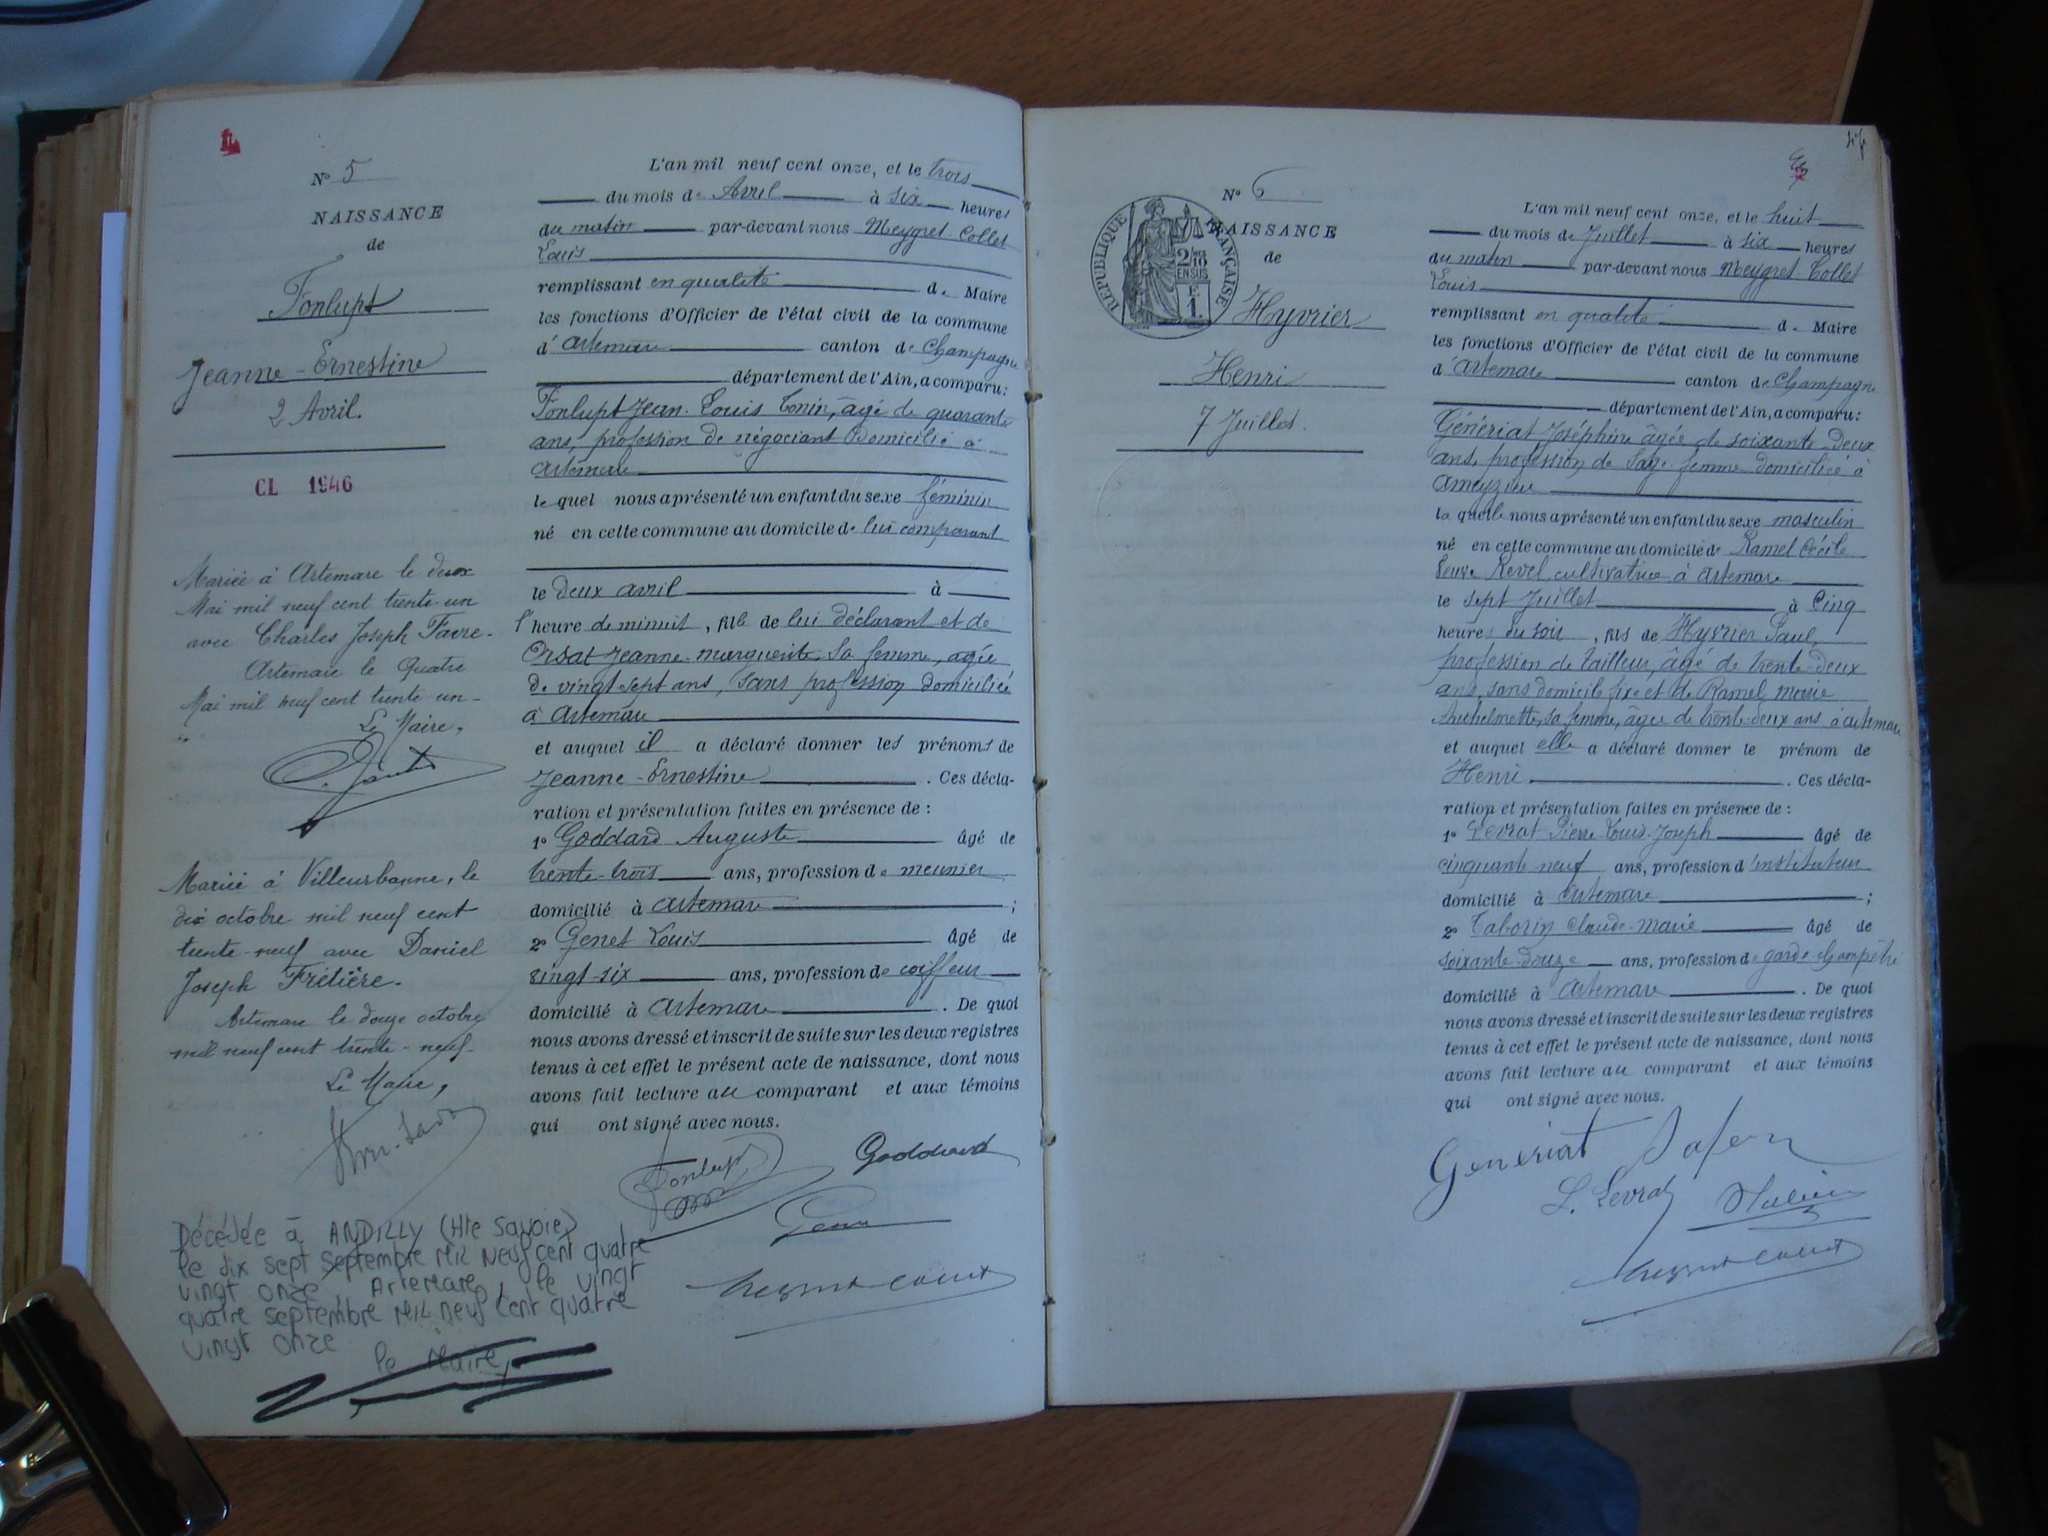 N° 5
NAISSANCE
de
Fonlupt
Jeanne-Ernestine
2 Avril.
CL 1946
Mariée à Artemare le deux
Mai mil neuf cent trente un
avec Charles Joseph Favre.
Artemare le Quatre
Mai mil neuf cent trente un-
Le Maire,
Mariée à Villeurbanne, le
dix octobre mil neuf cent
trente-neuf avec Daniel
Joseph Frélière.
Artemare le douze octobre
mil neuf cent trente-neuf-
Le Maire,
Décédée à ANDILLY (Hte Savoie)
le dix sept septembre Mil Neuf cent quatre
vingt onze. Artemare, le vingt
quatre septembre Mil neuf cent quatre
vingt onze
le Maire,
L'an mil neuf cent onze, et le trois
du mois de Avril à six heures
du matin par-devant nous Meygret Collet
Louis
remplissant en qualité de Maire
les fonctions d'Officier de l'état civil de la commune
d'Artemare canton de Champagne
département de l'Ain, a comparu:
Fonlupt Jean-Louis Tonin, âgé de quarante
ans, profession de négociant Domicilié à
Artemare
lequel nous a présenté un enfant du sexe féminin
né en cette commune au domicile de lui comparant
le deux avril à
l'heure de minuit, fille de lui déclarant et de
Orsat Jeanne marguerite, sa femme, agée
de vingt-sept ans, sans profession domiciliée
à Artemare
et auquel il a déclaré donner les prénoms de
Jeanne-Ernestine. Ces décla-
ration et présentation faites en présence de :
1° Goddard Auguste âgé de
trente-trois ans, profession de meunier
domicilié à Artemare ;
2° Genet Louis âgé de
vingt-six ans, profession de coiffeur
domicilié à Artemare. De quoi
nous avons dressé et inscrit de suite sur les deux registres
tenus à cet effet le présent acte de naissance, dont nous
avons fait lecture au comparant et aux témoins
qui ont signé avec nous.
Fonlupt Goddard
Genet
Meygret Collet
N° 6
NAISSANCE
de
RÉPUBLIQUE FRANÇAISE
2/10 EN SUS
Hyvrier
Henri
7 Juillet.
L'an mil neuf cent onze, et le huit
du mois de Juillet à six heures
du matin par-devant nous Meygret Collet
Louis
remplissant en qualité de Maire
les fonctions d'Officier de l'état civil de la commune
d'Artemare canton de Champagne
département de l'Ain, a comparu:
Génériat Joséphine âgée de soixante deux
ans, profession de Sage femme domiciliée à
Ameyzieu
laquelle nous a présenté un enfant du sexe masculin
né en cette commune au domicile de Ramel Cécile
Veuve Revel cultivatrice à Artemare
le sept Juillet à Cinq
heures du soir, fils de Hyvrier Paul,
profession de tailleur, âgé de trente-deux
ans, sans domicile fixe et de Ramel marie
Anthelmette, sa femme, âgée de trente-deux ans à artemare
et auquel elle a déclaré donner le prénom de
Henri. Ces décla-
ration et présentation faites en présence de :
1° Levrat Pierre Louis-Joseph âgé de
cinquante neuf ans, profession d'instituteur
domicilié à Artemare ;
2° Taborin Claude-marie âgé de
soixante-douze ans, profession de garde-champêtre
domicilié à Artemare. De quoi
nous avons dressé et inscrit de suite sur les deux registres
tenus à cet effet le présent acte de naissance, dont nous
avons fait lecture au comparant et aux témoins
qui ont signé avec nous.
Generiat
L. Levrat
Meygret Collet